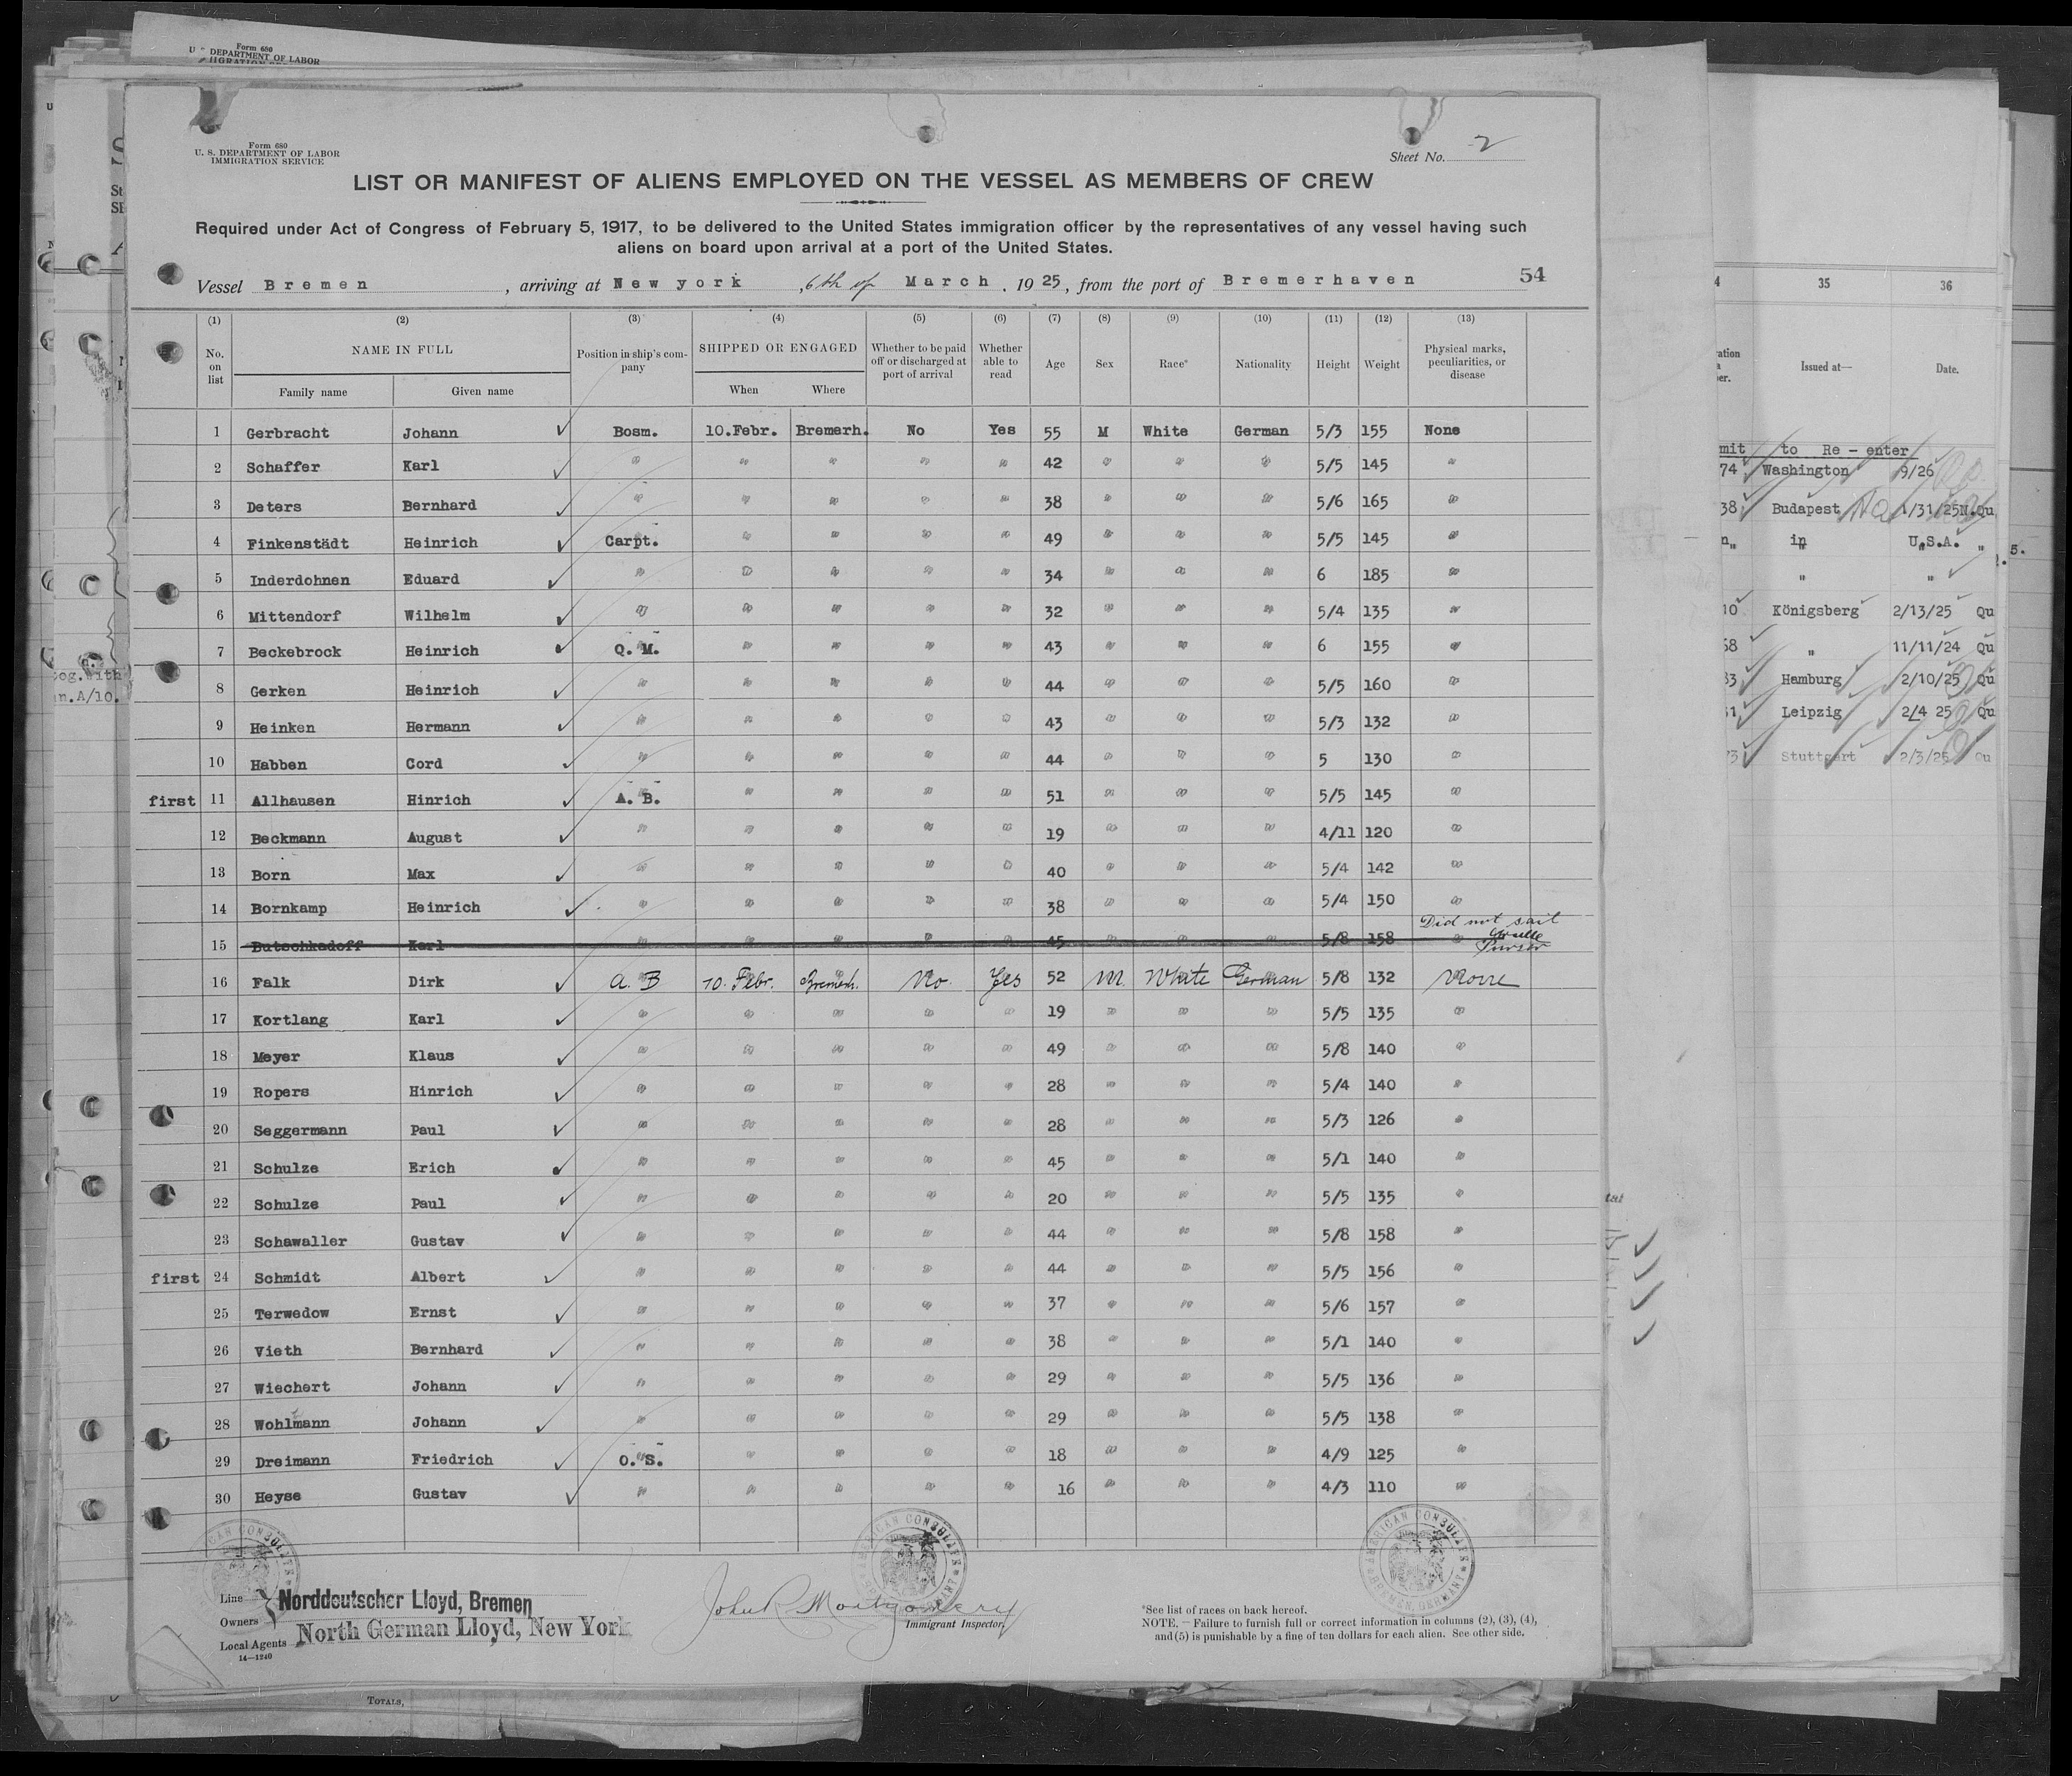 Form 680
U. S. DEPARTMENT OF LABOR
Form 680
U. S. DEPARTMENT OF LABOR
IMMIGRATION SERVICE
Sheet No. 2
LIST OR MANIFEST OF ALIENS EMPLOYED ON THE VESSEL AS MEMBERS OF CREW
Required under Act of Congress of February 5, 1917, to be delivered to the United States immigration officer by the representatives of any vessel having such
aliens on board upon arrival at a port of the United States.
Vessel Bremen, arriving at New york, 6th of March, 1925, from the port of Bremerhaven 54
(1) (2) (3) (4) (5) (6) (7) (8) (9) (10) (11) (12) (13)
No. on list NAME IN FULL Family name Given name Position in ship's company SHIPPED OR ENGAGED When Where Whether to be paid off or discharged at port of arrival Whether able to read Age Sex Race* Nationality Height Weight Physical marks, peculiarities, or disease
1 Gerbracht Johann Bosm. 10.Febr. Bremerh. No Yes 55 M White German 5/3 155 None
2 Schaffer Karl " " " " " 42 " " " 5/5 145 "
3 Deters Bernhard " " " " " 38 " " " 5/6 165 "
4 Finkenstädt Heinrich Carpt. " " " " 49 " " " 5/5 145 "
5 Inderdohnen Eduard " " " " " 34 " " " 6 185 "
6 Mittendorf Wilhelm " " " " " 32 " " " 5/4 135 "
7 Beckebrock Heinrich Q. M. " " " " 43 " " " 6 155 "
8 Gerken Heinrich " " " " " 44 " " " 5/5 160 "
9 Heinken Hermann " " " " " 43 " " " 5/3 132 "
10 Habben Cord " " " " " 44 " " " 5 130 "
first 11 Allhausen Hinrich A. B. " " " " 51 " " " 5/5 145 "
12 Beckmann August " " " " " 19 " " " 4/11 120 "
13 Born Max " " " " " 40 " " " 5/4 142 "
14 Bornkamp Heinrich " " " " " 38 " " " 5/4 150 "
Did not sail
15 Butschkadoff Karl " " " " " 45 " " " 5/8 158 "
Purser
16 Falk Dirk A. B 10. Febr. Bremerh. No Yes 52 M. White German 5/8 132 None
17 Kortlang Karl " " " " " 19 " " " 5/5 135 "
18 Meyer Klaus " " " " " 49 " " " 5/8 140 "
19 Ropers Hinrich " " " " " 28 " " " 5/4 140 "
20 Seggermann Paul " " " " " 28 " " " 5/3 126 "
21 Schulze Erich " " " " " 45 " " " 5/1 140 "
22 Schulze Paul " " " " " 20 " " " 5/5 135 "
23 Schawaller Gustav " " " " " 44 " " " 5/8 158 "
first 24 Schmidt Albert " " " " " 44 " " " 5/5 156 "
25 Terwedow Ernst " " " " " 37 " " " 5/6 157 "
26 Vieth Bernhard " " " " " 38 " " " 5/1 140 "
27 Wiechert Johann " " " " " 29 " " " 5/5 136 "
28 Wohlmann Johann " " " " " 29 " " " 5/5 138 "
29 Dreimann Friedrich O. S. " " " " 18 " " " 4/9 125 "
30 Heyse Gustav " " " " " 16 " " " 4/3 110 "
AMERICAN CONSULATE
AMERICAN CONSULATE
AMERICAN CONSULATE BREMEN, GERMANY
Line Norddeutscher Lloyd, Bremen
Owners
Local Agents North German Lloyd, New York
14—1240
John R Montgomery
Immigrant Inspector.
*See list of races on back hereof.
NOTE. — Failure to furnish full or correct information in columns (2), (3), (4),
and (5) is punishable by a fine of ten dollars for each alien. See other side.
35 36
Issued at— Date.
mit to Re - enter
74 Washington 9/26
38 Budapest 1/31/25 N.Qu
in U.S.A. "
" "
10 Königsberg 2/13/25 Qu
58 " 11/11/24 Qu
33 Hamburg 2/10/25 Qu
51 Leipzig 2/4 25 Qu
73 Stuttgart 2/3/25 Qu
TOTALS,